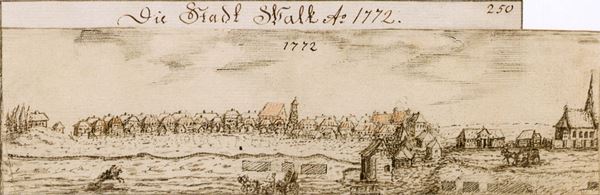 Die Stadt Walk Aº 1772.
250
1772